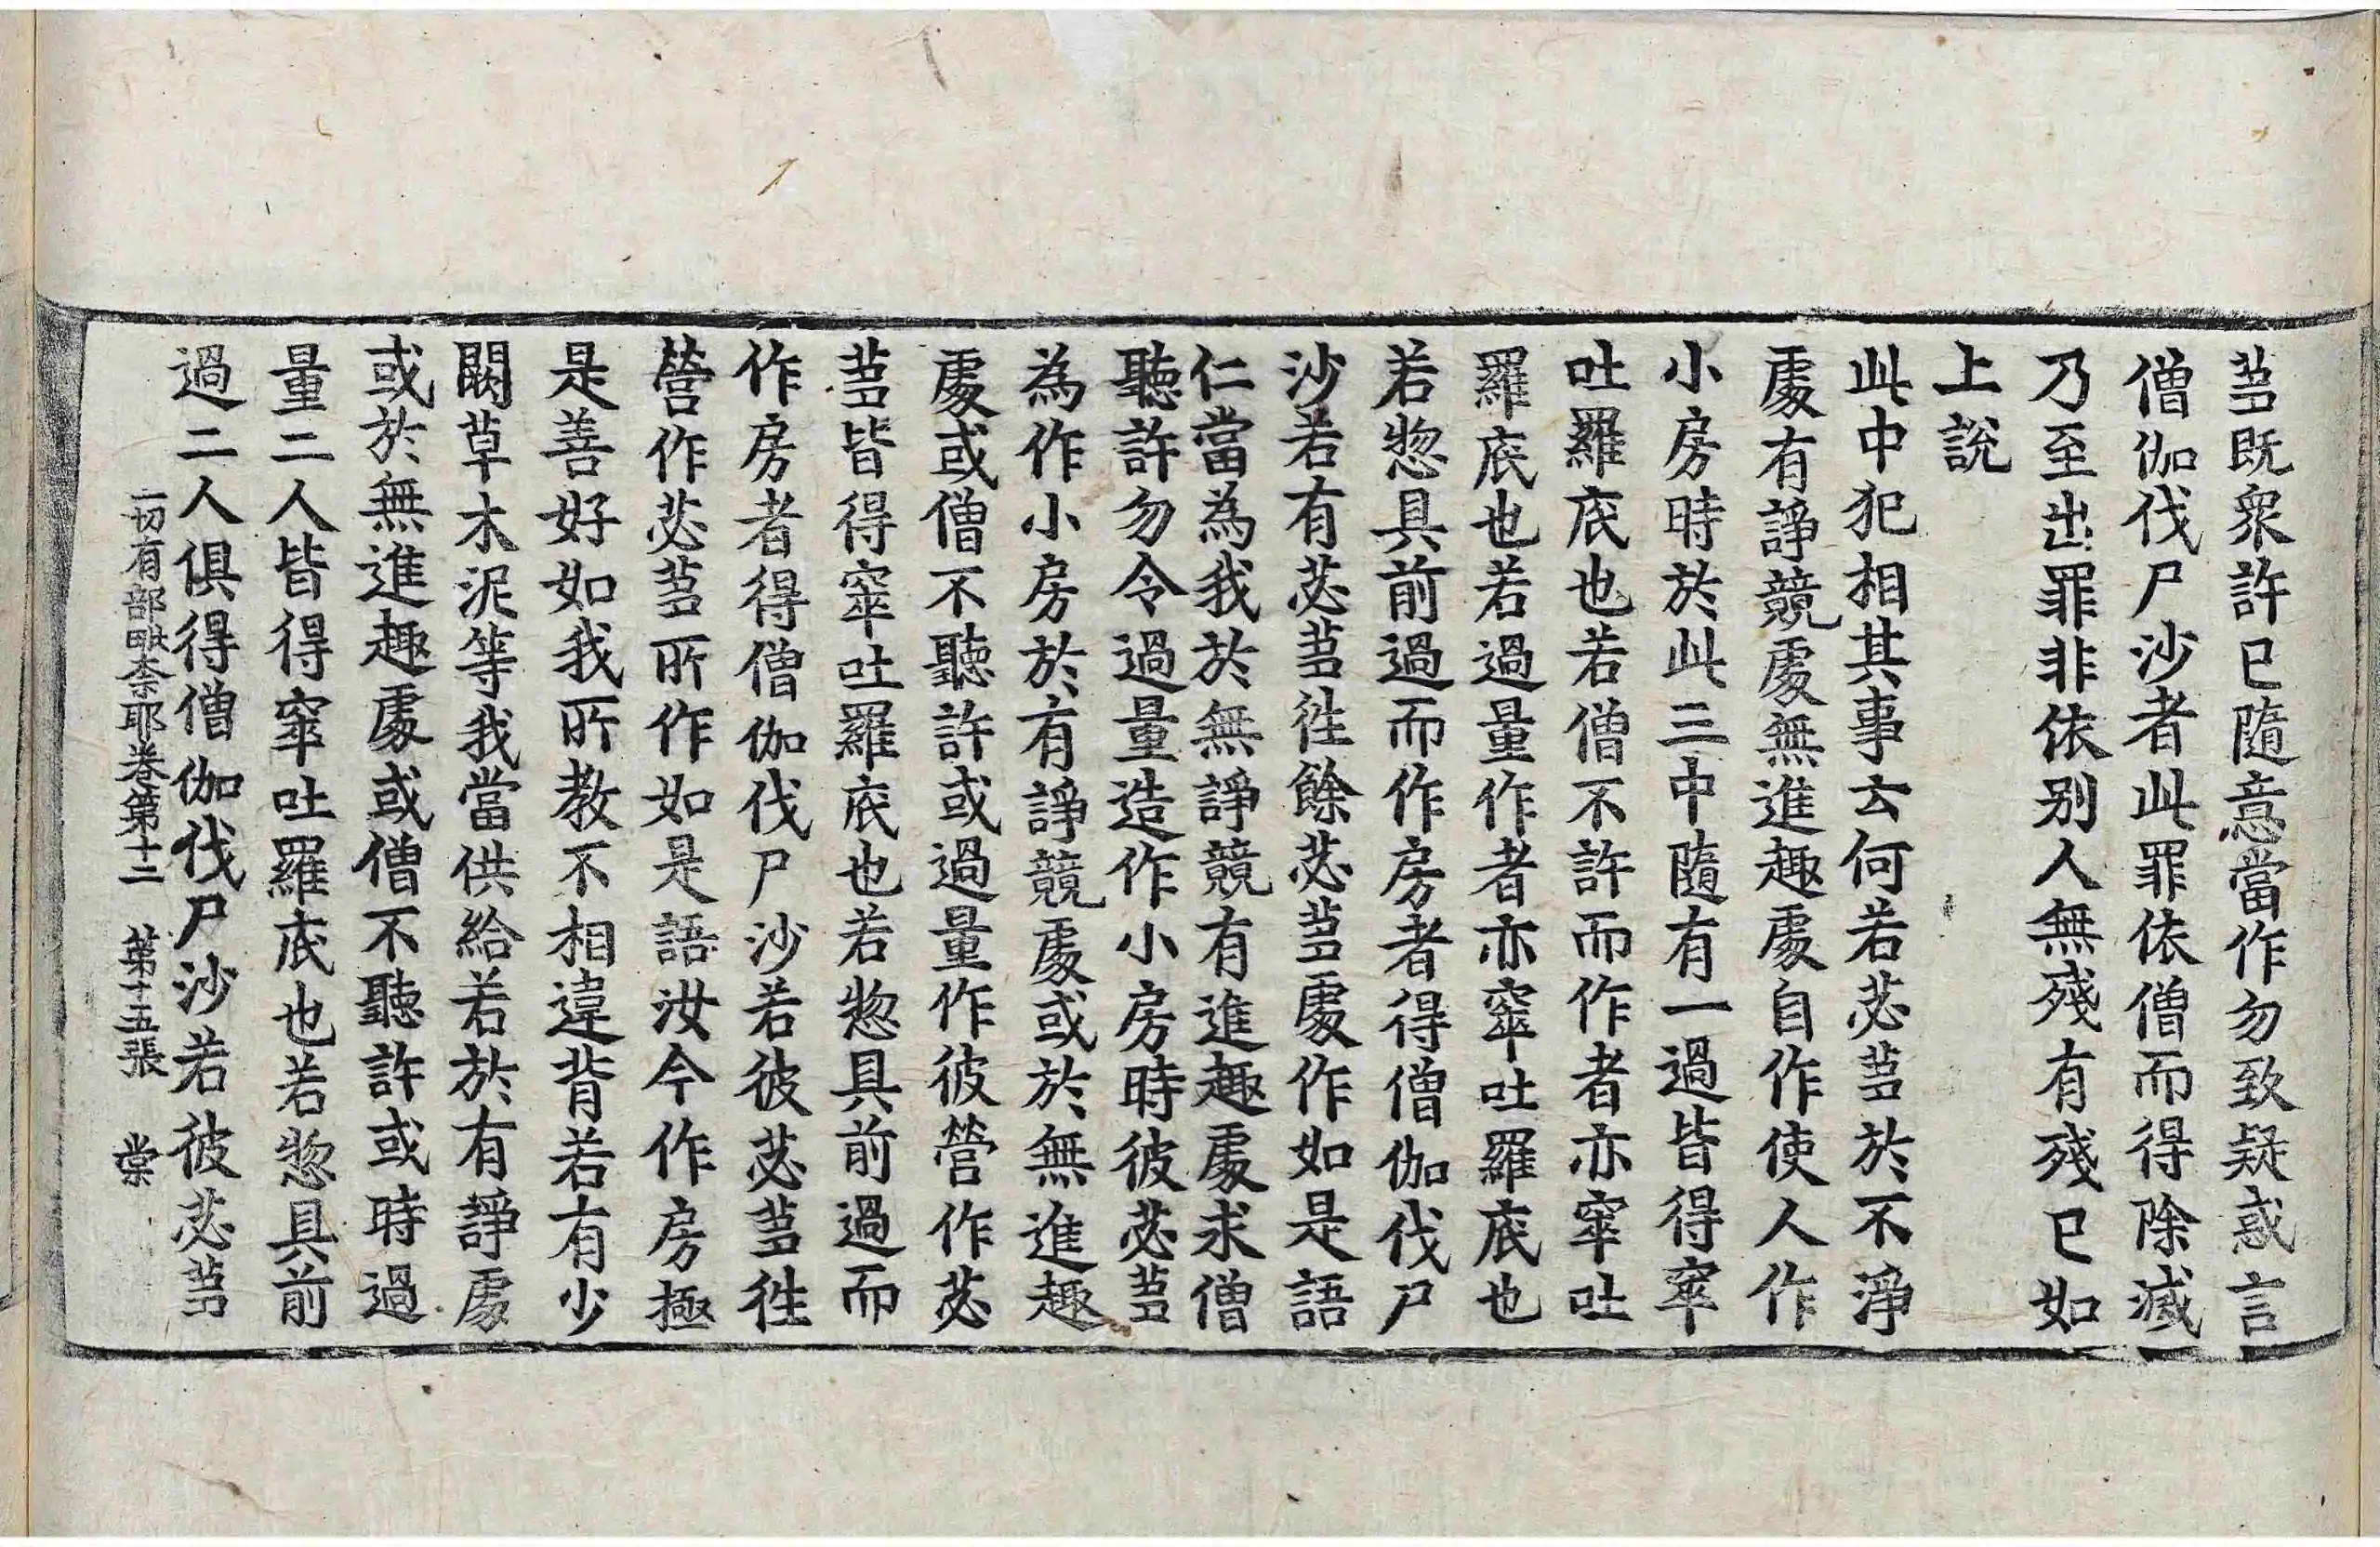 苾既衆許已隨意當作勿致疑惑言
僧伽伐尸沙者此罪依僧而得除滅
乃至出罪非依別人無殘有殘已如
上說
此中犯相其事云何若苾芻於不淨
處有諍競處無進趣處自作使人作
小房時於此三中隨有一過皆得窣
吐羅底也若僧不許而作者亦窣吐
羅底也若過量作者亦窣吐羅底也
若惣具前過而作房者得僧伽伐尸
沙若有苾芻往餘苾芻處作如是語
仁當為我於無諍競有進趣處求僧
聽許勿令過量造作小房時彼苾芻
為作小房於有諍競處或於無進趣
處或僧不聽許或過量作彼營作苾
芻皆得窣吐羅底也若惣具前過而
作房者得僧伽伐尸沙若彼苾芻往
營作苾芻所作如是語汝今作房極
是善好如我所教不相違背若有少
闕草木泥等我當供給若於有諍處
或於無進趣處或僧不聽許或時過
量二人皆得窣吐羅底也若惣具前
一切有部毗奈耶卷第十二 第十五張 棠
過二人俱得僧伽伐尸沙若彼苾芻